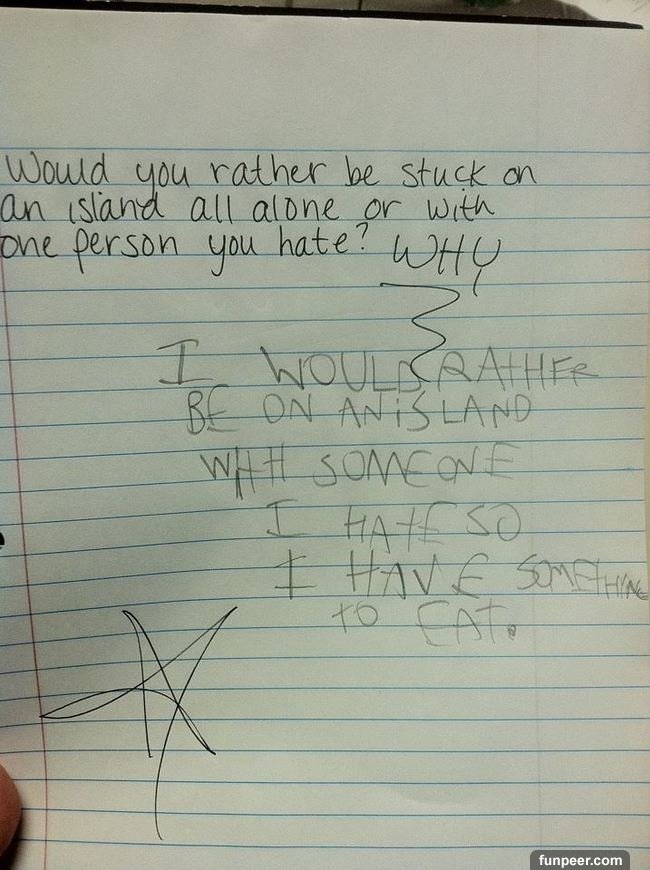 Would you rather be stuck on
an island all alone or with
one person you hate? WHY
I WOULD RATHER
BE ON AN iSLAND
WitH SOMEONE
I HAtE SO
I HAVE SOMEtHING
tO EAt.
funpeer.com